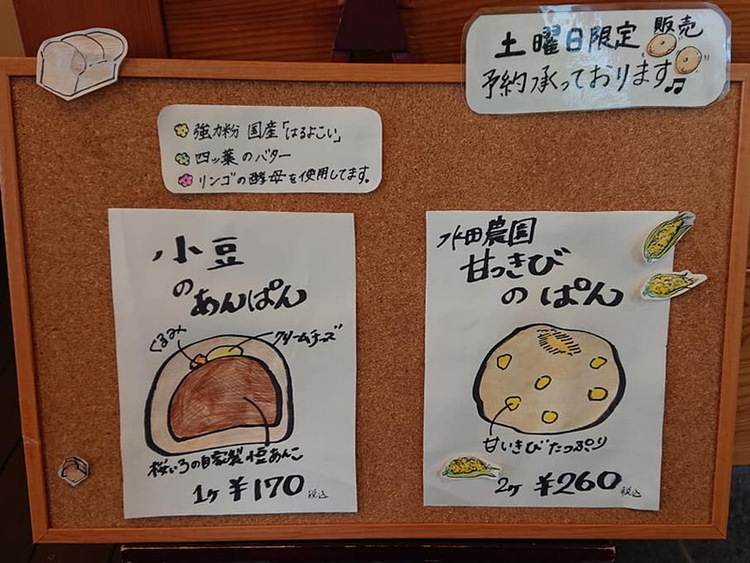 土曜日限定 販売
予約承っております♫
強力粉 国産「はるよこい」
四ッ葉のバター
リンゴの酵母を使用してます。
小豆
の あんぱん
くるみ
クリームチーズ
桜いろの自家製小豆あんこ
1ヶ ¥170 税込
水田農園
甘っきび
の ぱん
甘いきびたっぷり
2ヶ ¥260 税込